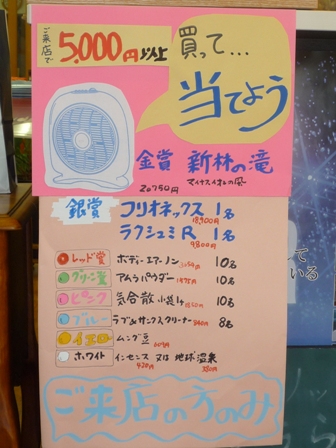 ご来店で
5,000円以上
買って…
当てよう
金賞 新林の滝
20790円 マイナスイオンの風
銀賞 フリオネックス 1名
18,900円
ラクシュミR 1名
9800円
レッド賞 ボディーエアーノン 10名
グリーン賞 アムラパウダー 1475円 10名
ピンク 気合散 小袋 10名
ブルー ラブ&サンクスクリーナー 840円 8名
イエロー ムング豆
ホワイト インセンス 又は 地球温来
420円 350円
ご来店の方のみ
ている